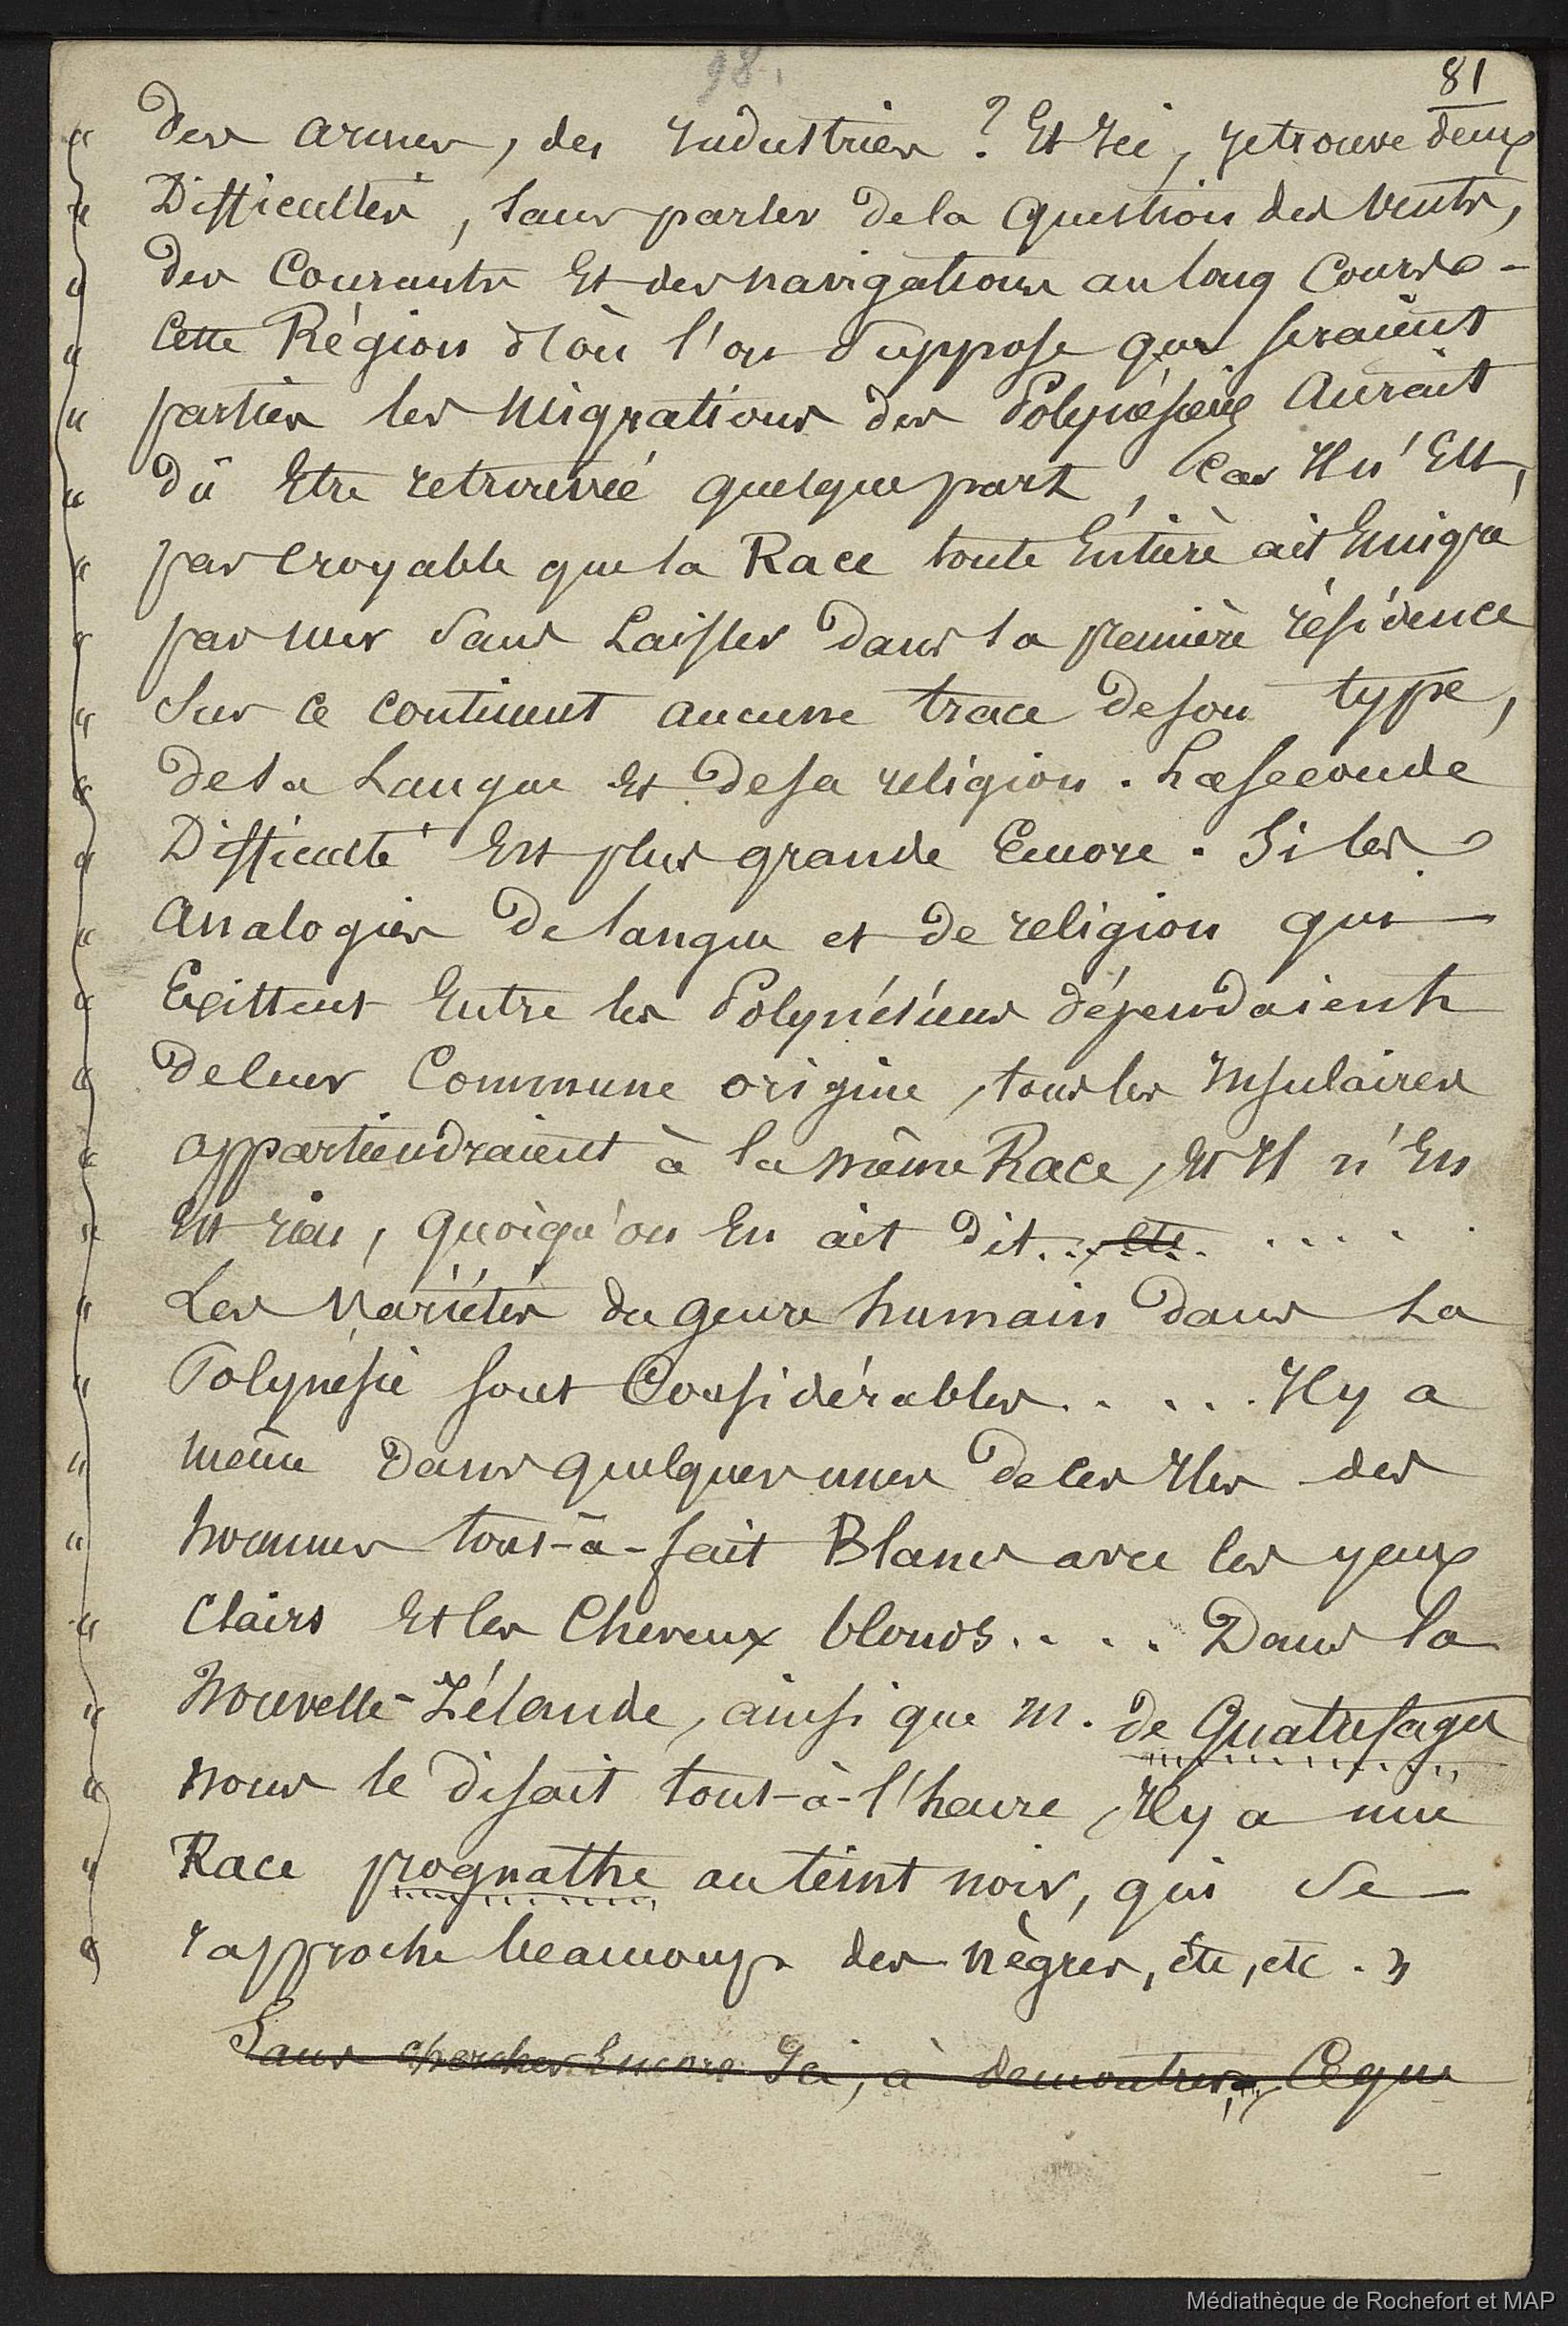 98.
81
" des armes, des Industries ? Et Ici, je trouve deux
" Difficultés, sans parler de la question des vents,
" des Courants Et des navigations au long Cours -
" Cette Région d'où l'on suppose que seraient
" parties les Migrations des Polynésiens Aurait
" dû Etre retrouvée quelque part, Car Il n'Est,
" pas croyable que la Race toute Entière ait Emigré
" par mer sans Laisser dans sa première résidence
" Sur ce continent aucune trace de son type,
" de sa Langue Et de sa religion. La seconde
" Difficulté Est plus grande Encore. Si les
" Analogies de langue et de religion qui
" Existent Entre les Polynésiens dépendaient
" de leur Commune origine, tous les Insulaires
" appartiendraient à la même Race, Et Il n'En
" Est rien, quoiqu'on En ait dit... etc. . . . . .
" Les Variétés du genre humain dans La
" Polynésie sont Considérables. . . . . Il y a
" même dans quelques unes de ces Iles des
" hommes tout-à-fait Blancs avec les yeux
" Clairs Et les Cheveux blonds. . . . Dans la
" Nouvelle-Zélande, ainsi que M. de Quatrefages
" nous le disait tout-à-l'heure, Il y a une
" Race prognathe au teint noir, qui se
" rapproche beaucoup des nègres, etc, etc. "
Sans chercher Encore Ici, à demontrer, Ce que
Médiathèque de Rochefort et MAP